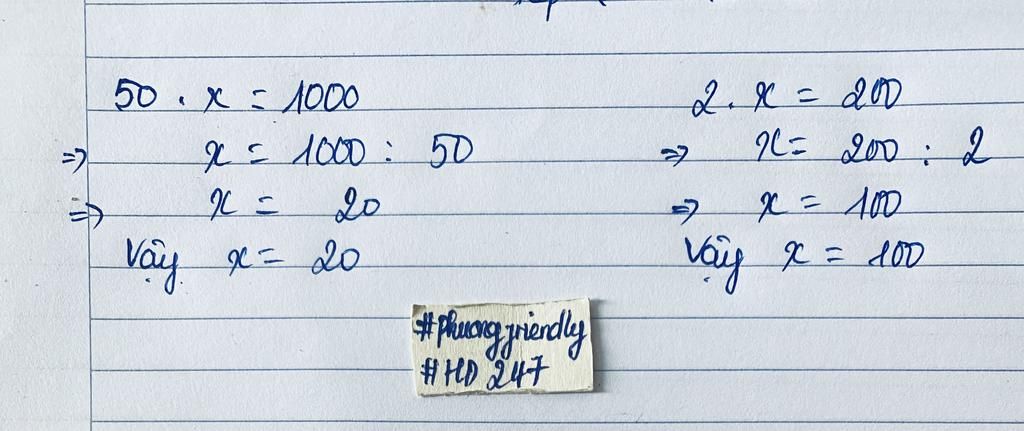 50 . x = 1000
=> x = 1000 : 50
=> x = 20
Vậy x = 20
2 . x = 200
=> x = 200 : 2
=> x = 100
Vậy x = 100
#phuongfriendly
#HD 247